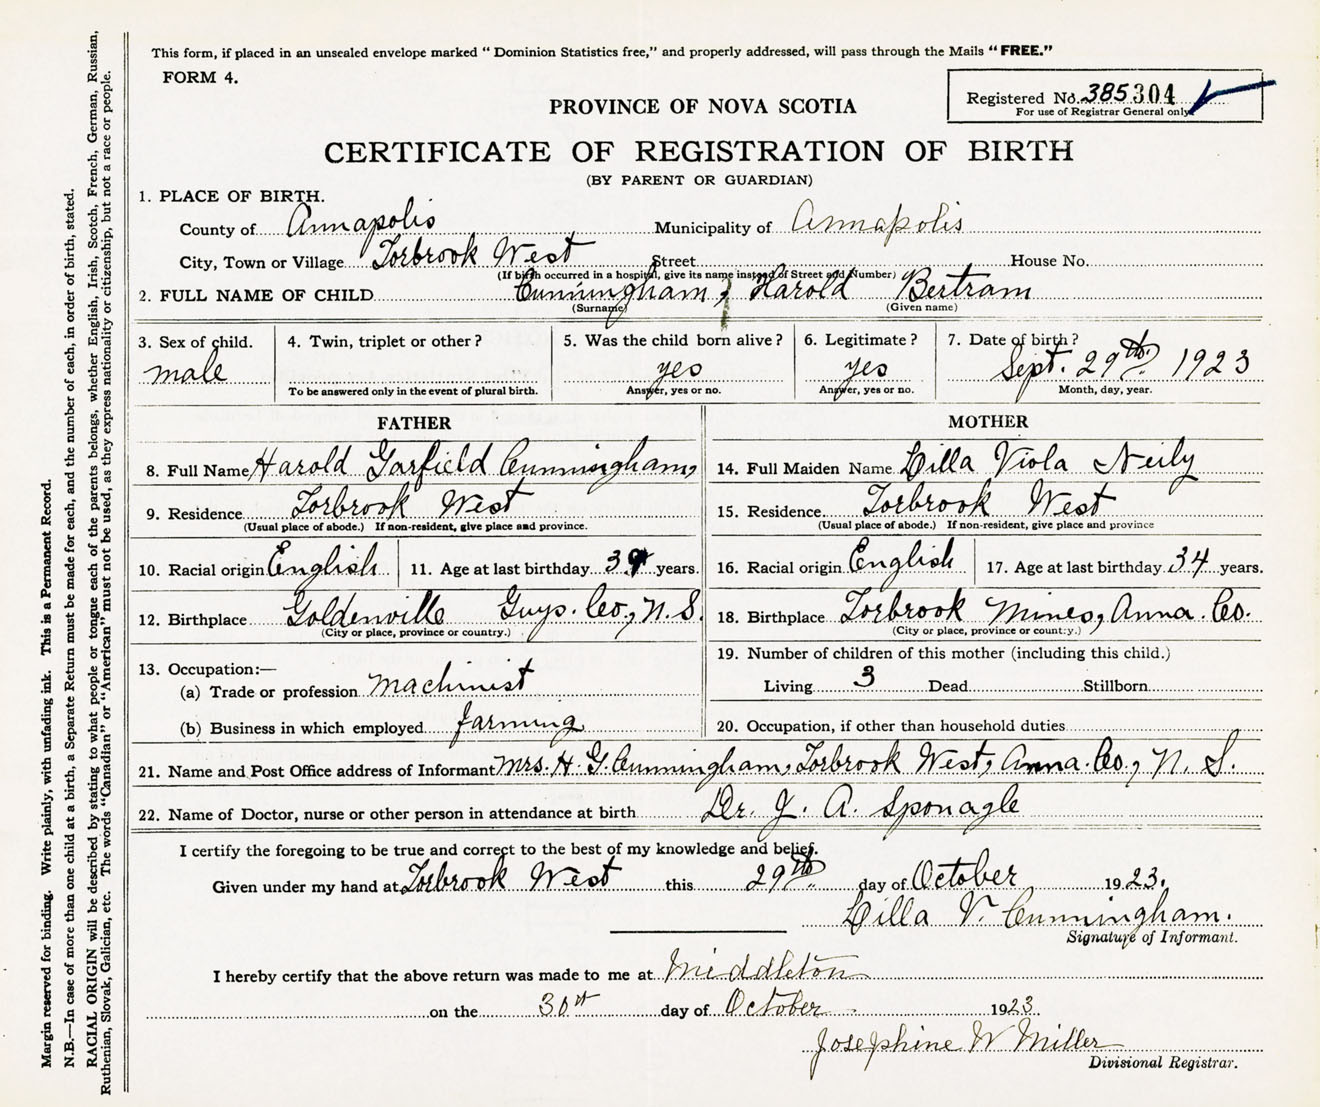 This form, if placed in an unsealed envelope marked "Dominion Statistics free," and properly addressed, will pass through the Mails "FREE."
FORM 4.
Registered No. 385304
For use of Registrar General only.
PROVINCE OF NOVA SCOTIA
CERTIFICATE OF REGISTRATION OF BIRTH
(BY PARENT OR GUARDIAN)
1. PLACE OF BIRTH.
County of Annapolis Municipality of Annapolis
City, Town or Village Torbrook West Street House No.
(If birth occurred in a hospital, give its name instead of Street and Number)
2. FULL NAME OF CHILD Cunningham, Harold Bertram
(Surname) (Given name)
3. Sex of child. 4. Twin, triplet or other? 5. Was the child born alive? 6. Legitimate? 7. Date of birth?
male yes yes Sept. 29th. 1923
To be answered only in the event of plural birth. Answer, yes or no. Answer, yes or no. Month, day, year.
FATHER MOTHER
8. Full Name Harold Garfield Cunningham, 14. Full Maiden Name Lilla Viola Neily
9. Residence Torbrook West 15. Residence Torbrook West
(Usual place of abode.) If non-resident, give place and province. (Usual place of abode.) If non-resident, give place and province
10. Racial origin English 11. Age at last birthday years. 16. Racial origin English 17. Age at last birthday 34 years.
12. Birthplace Goldenville Guys. Co., N.S. 18. Birthplace Torbrook Mines, Anna. Co.
(City or place, province or country.) (City or place, province or country.)
13. Occupation:— 19. Number of children of this mother (including this child.)
(a) Trade or profession machinist Living 3 Dead Stillborn
(b) Business in which employed farming 20. Occupation, if other than household duties
21. Name and Post Office address of Informant Mrs. H. G. Cunningham, Torbrook West, Anna. Co., N. S.
22. Name of Doctor, nurse or other person in attendance at birth Dr. J. A. Sponagle
I certify the foregoing to be true and correct to the best of my knowledge and belief.
Given under my hand at Torbrook West this 29th. day of October 1923.
Lilla V. Cunningham.
Signature of Informant.
I hereby certify that the above return was made to me at Middleton
on the 30th day of October 1923
Josephine W Miller
Divisional Registrar.
Margin reserved for binding. Write plainly, with unfading ink. This is a Permanent Record.
N.B.—In case of more than one child at a birth, a Separate Return must be made for each, and the number of each, in order of birth, stated.
RACIAL ORIGIN will be described by stating to what people or tongue each of the parents belongs, whether English, Irish, Scotch, French, German, Russian,
Ruthenian, Slovak, Galician, etc. The words "Canadian" or "American" must not be used, as they express nationality or citizenship, but not a race or people.